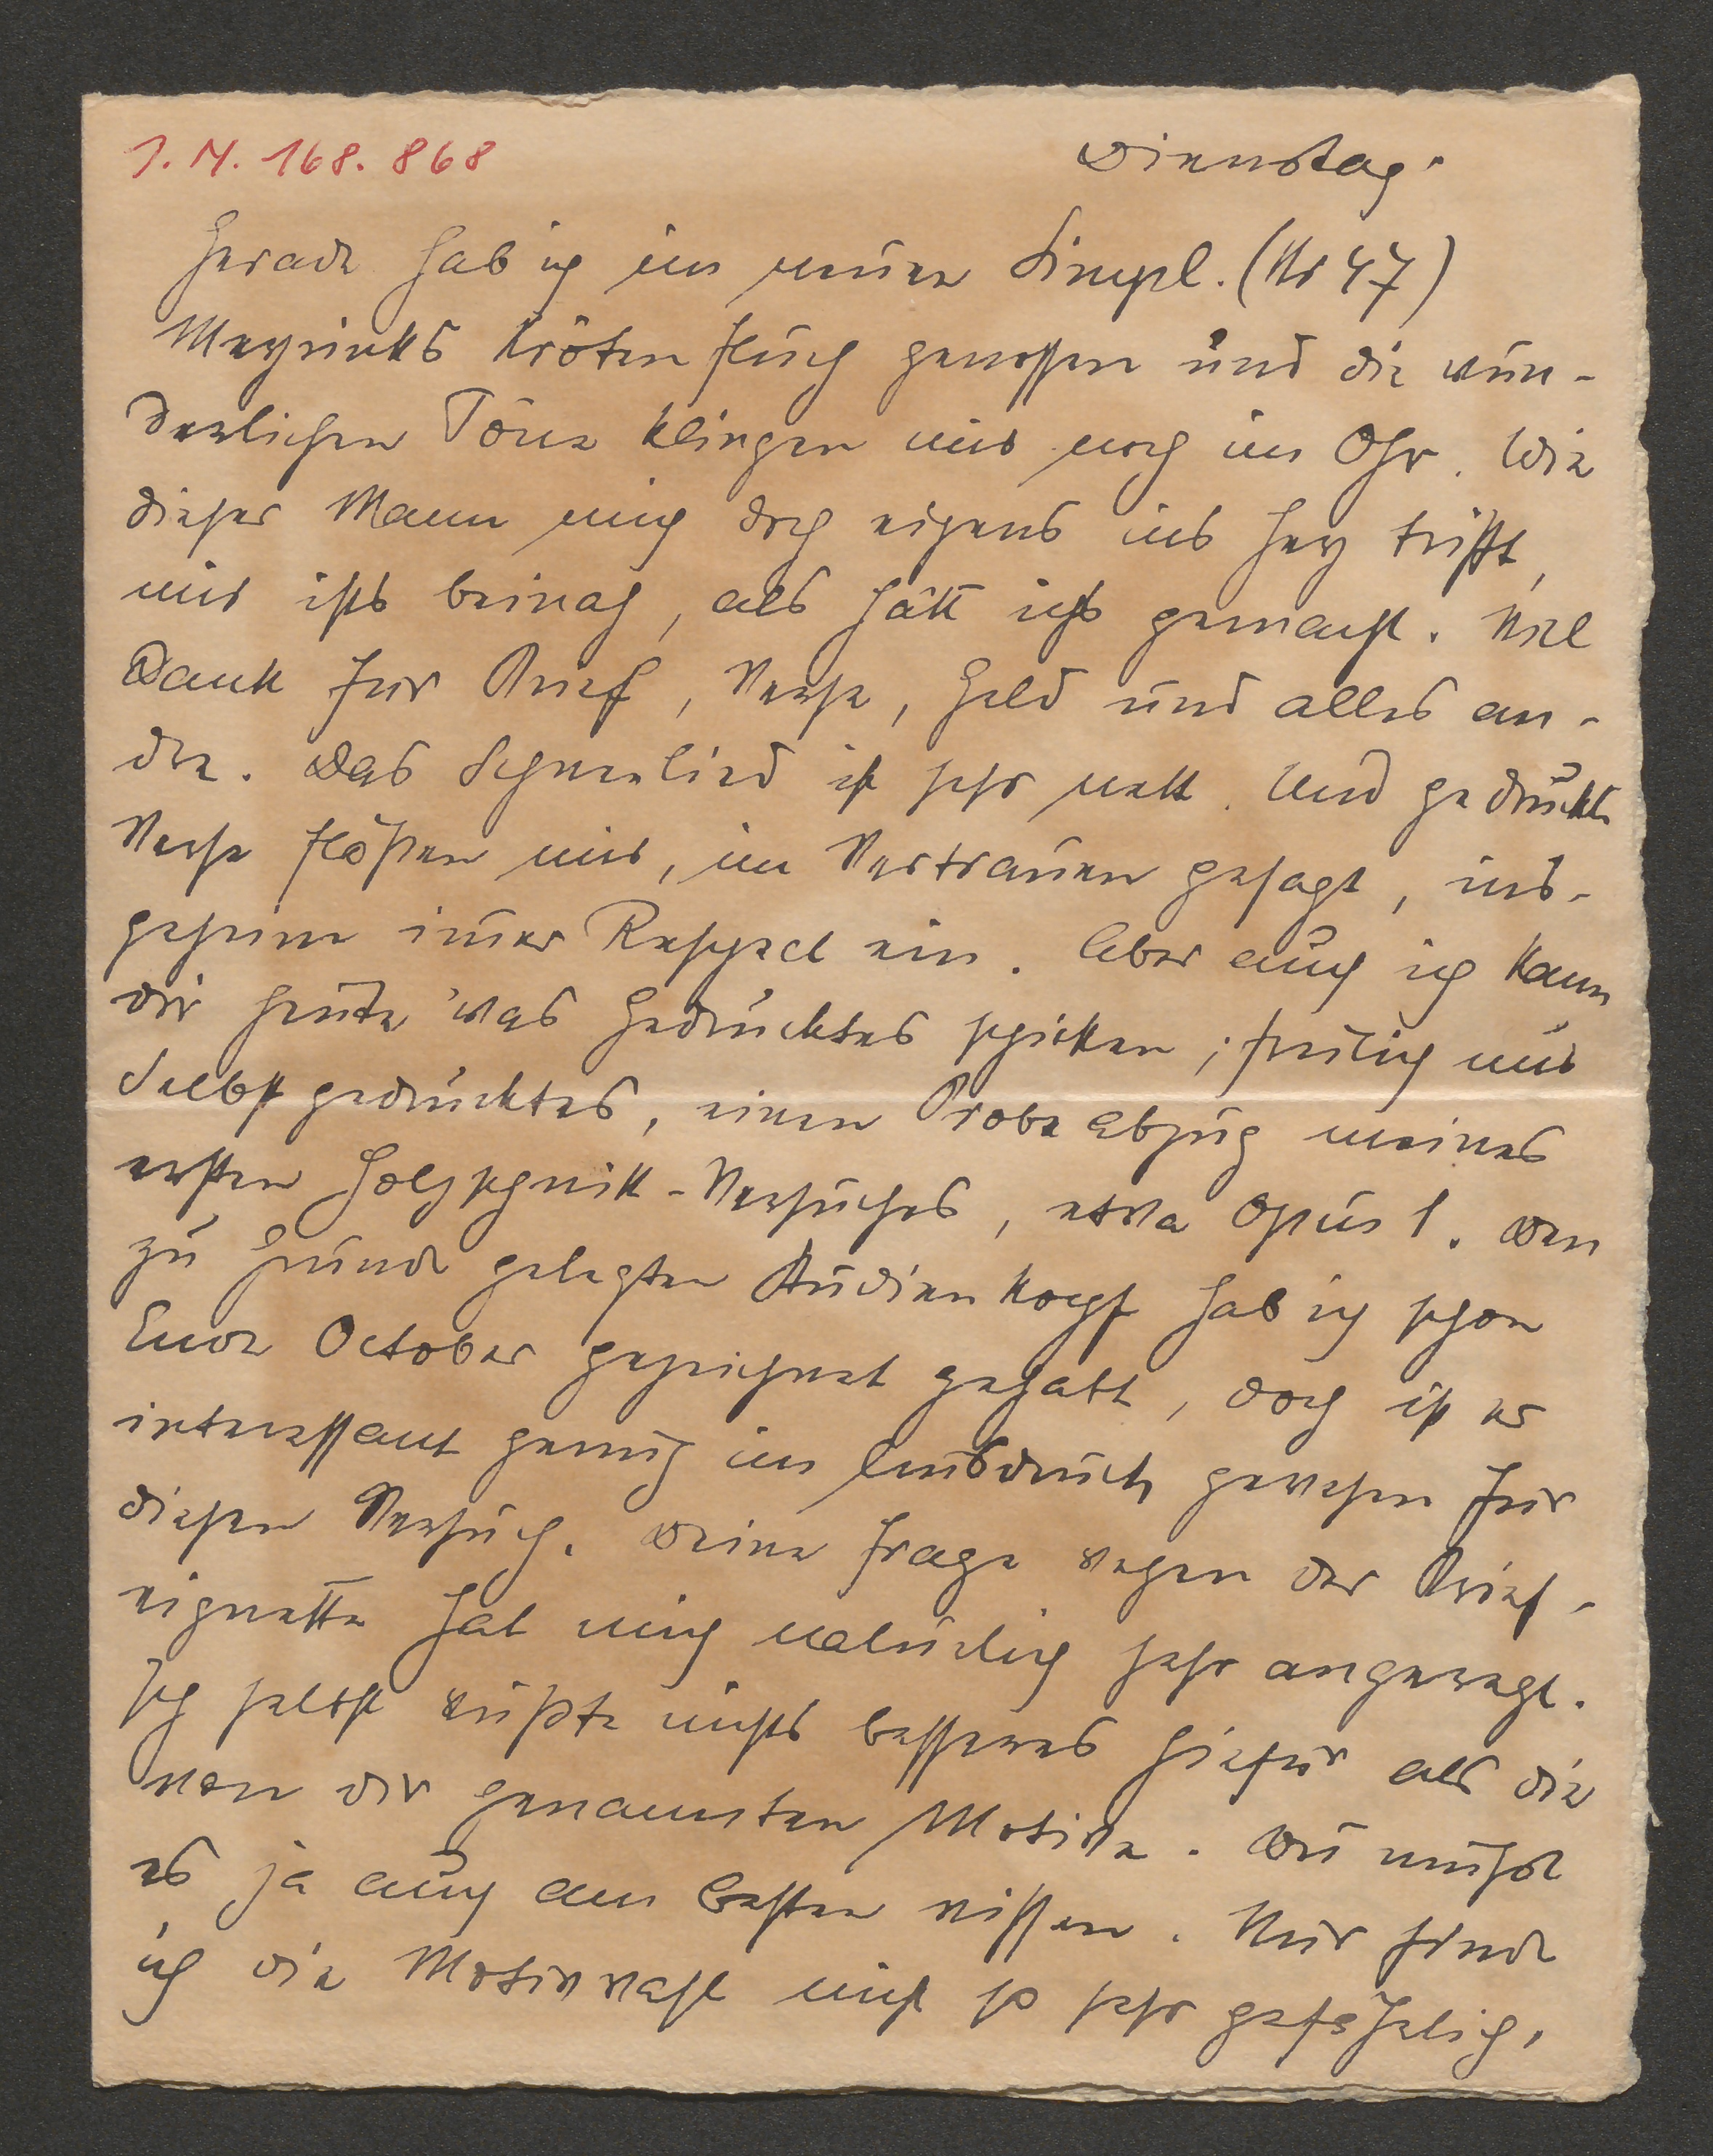 J. N. 168.868
Dienstag.
Gerade hab ich im neuen Simpl. (Nr 47)
Meyrinks Krötenfluch genossen und die wun-
derlichen Töne klingen mir noch im Ohr. Wie
dieser Mann mich doch eigens ins Herz trifft,
mir ists beinah, als hätt ichs gemacht. Viel
Dank für Brief, Verse, Geld und alles an-
dre. Das Scherenlied ist sehr nett. Und gedruckte
Verse flößen mir, im Vertrauen gesagt, ins-
geheim immer Respect ein. Aber auch ich kann
dir heute was Gedrucktes schicken; freilich nur
Selbstgedrucktes, einen Probeabzug meines
ersten Holzschnitt-Versuches, etwa Opus 1. Den
zu Grunde gelegten Studienkopf hab ich schon
Ende October gezeichnet gehabt, doch ist er
interessant genug im Ausdruck gewesen für
diesen Versuch. Deine Frage wegen der Brief-
vignette hat mich natürlich sehr angeregt.
Ich selbst wüßte nichts besseres hiefür als die
von dir genannten Motive. Du mußt
es ja auch am besten wissen. Nur finde
ich die Motivwahl nicht so sehr gefährlich,